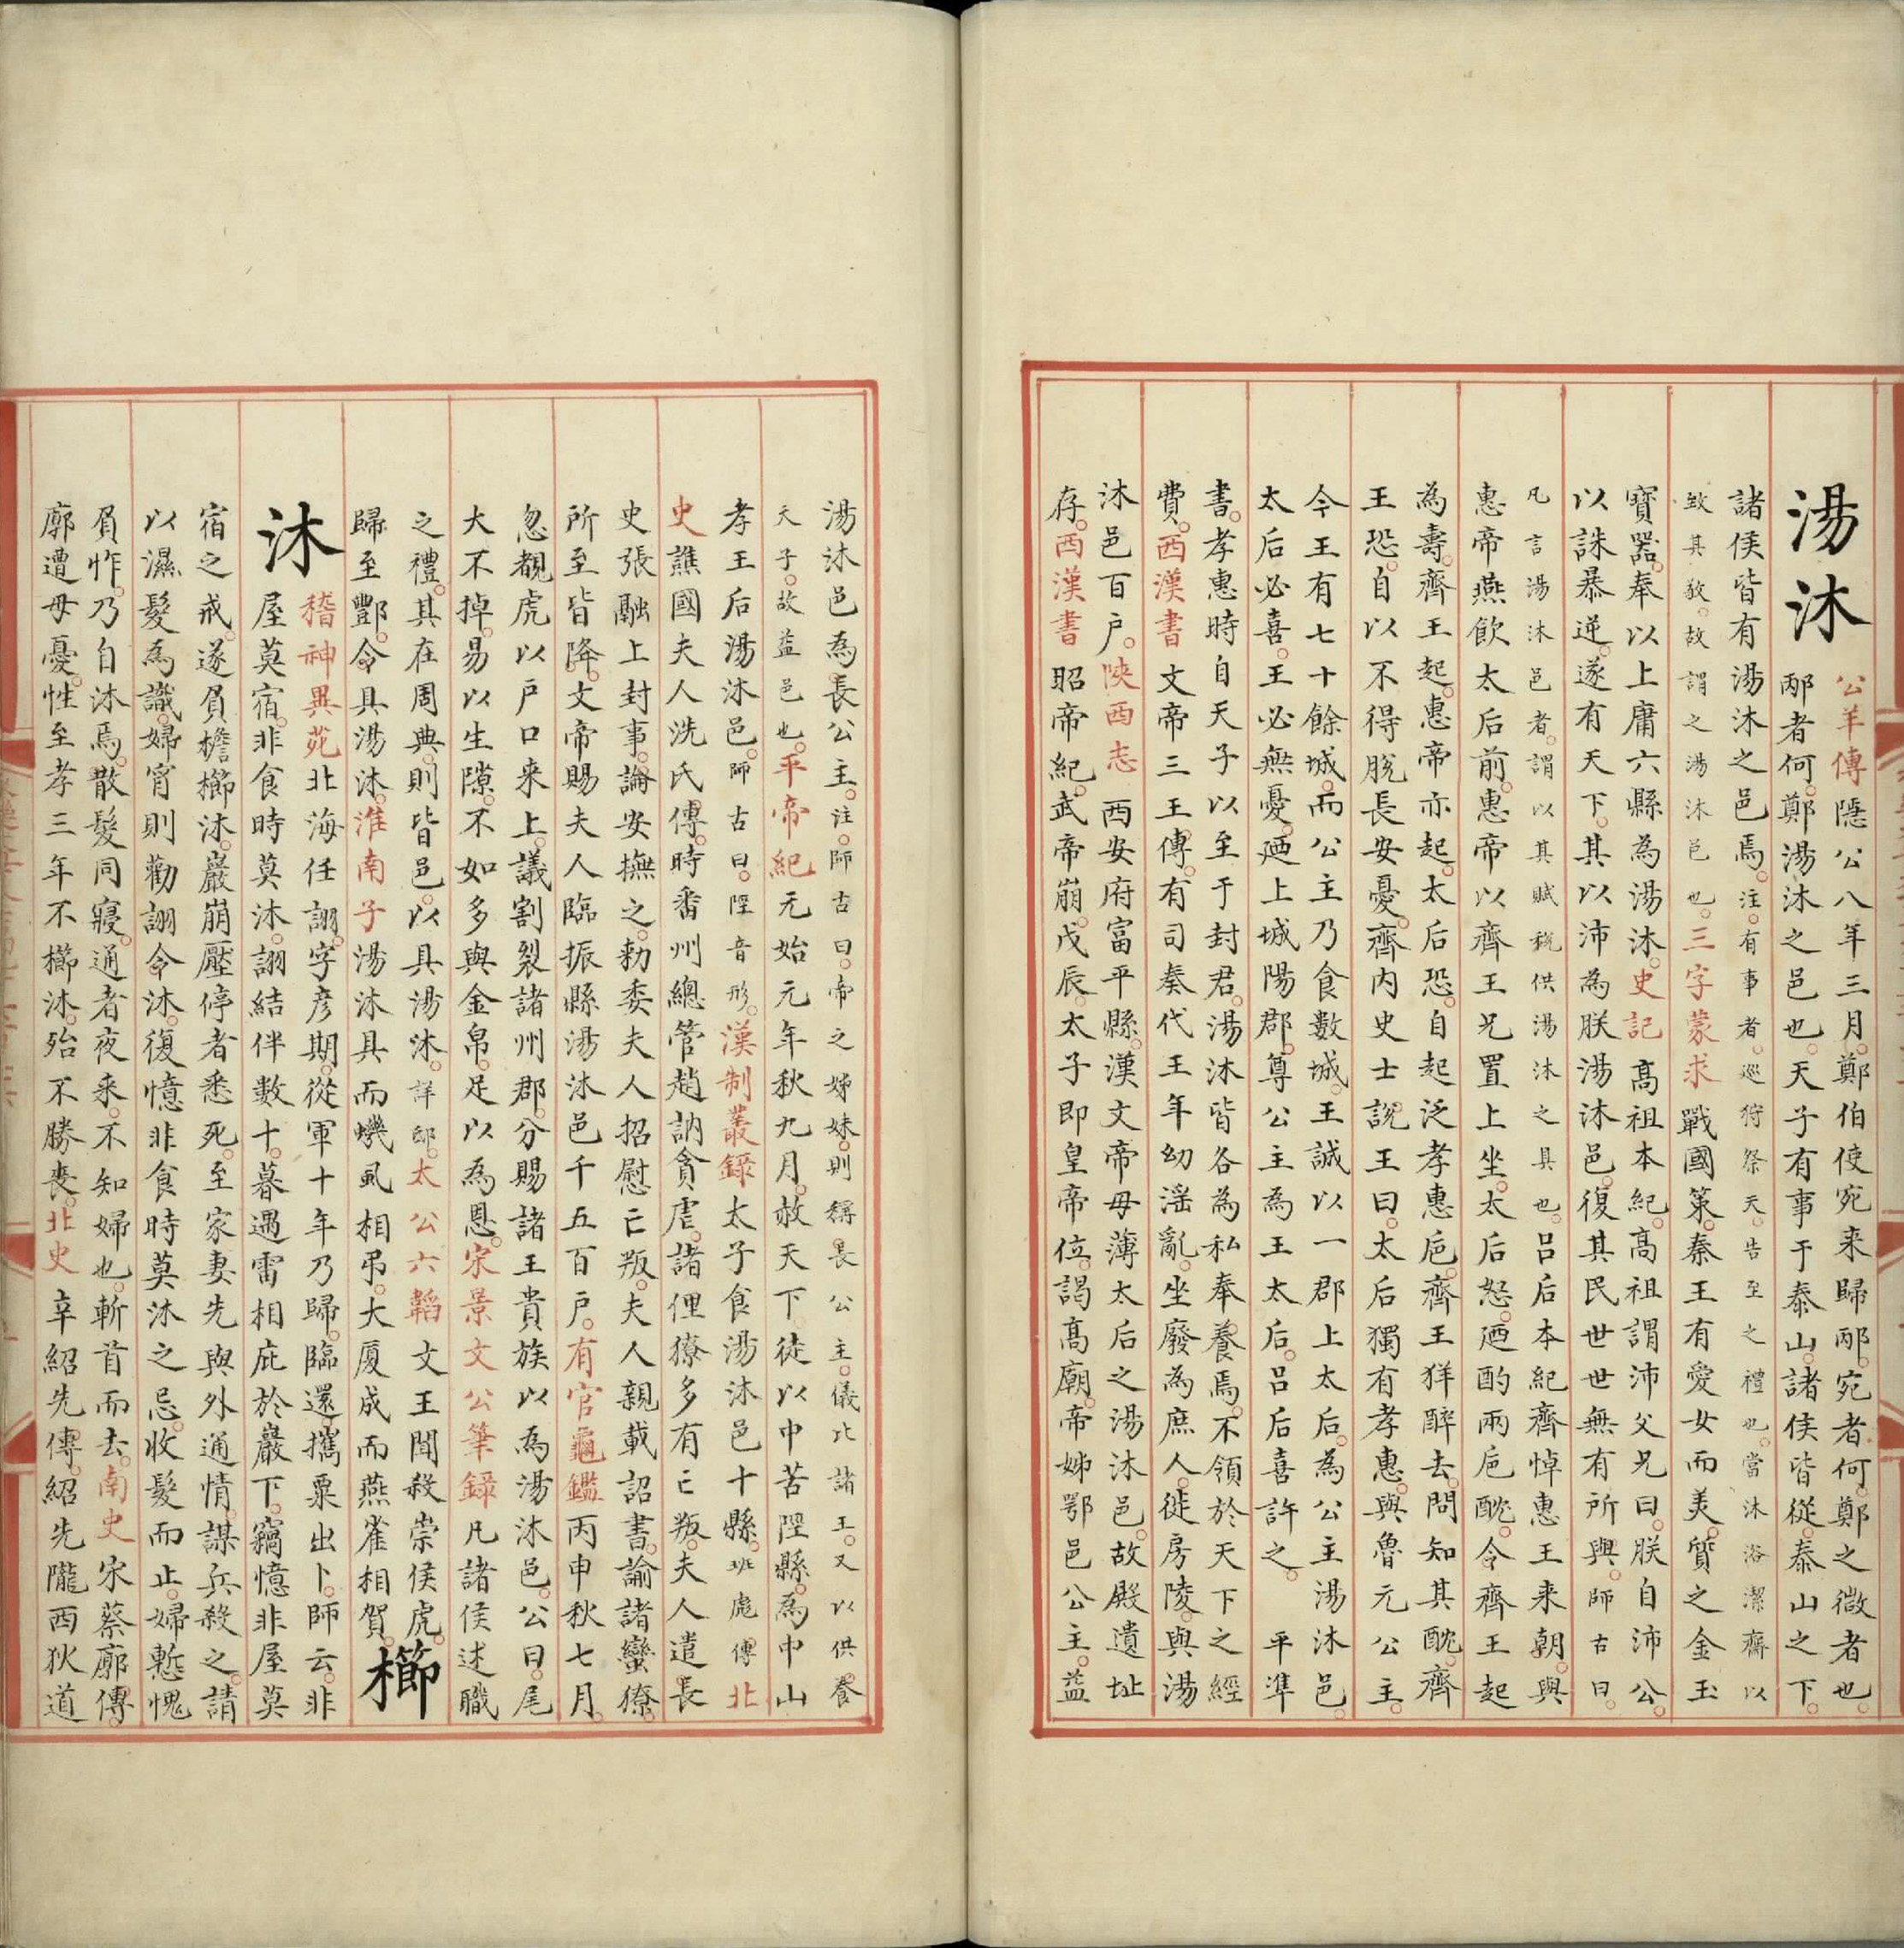 湯沐
公羊傳隱公八年三月。鄭伯使宛来歸邴。宛者何。鄭之微者也。
邴者何。鄭湯沐之邑也。天子有事于泰山。諸侯皆從。泰山之下。
諸侯皆有湯沐之邑焉。注。有事者。巡狩祭天。告至之禮也。當沐浴潔齊以
致其敬。故謂之湯沐邑也。三字蒙求戰國策。秦王有愛女而美。質之金玉
寶器。奉以上庸六縣為湯沐。史記高祖本紀。高祖謂沛父兄曰。朕自沛公。
以誅暴逆。遂有天下。其以沛為朕湯沐邑。復其民世世無有所與。師古曰。
凡言湯沐邑者。謂以其賦稅供湯沐之具也。呂后本紀齊悼惠王来朝。與
惠帝燕飲太后前。惠帝以齊王兄置上坐。太后怒。迺酌兩巵酖。令齊王起
為壽。齊王起。惠帝亦起。太后恐。自起泛孝惠巵。齊王徉醉去。問知其酖。齊
王恐。自以不得脫長安憂。齊内史士說王曰。太后獨有孝惠。與魯元公主。
今王有七十餘城。而公主乃食數城。王誠以一郡上太后。為公主湯沐邑。
太后必喜。王必無憂。迺上城陽郡。尊公主為王太后。呂后喜許之。平準
書。孝惠時自天子以至于封君。湯沐皆各為私奉養焉。不領於天下之經
費。西漢書文帝三王傳。有司奏代王年幼滛亂。坐廢為庶人。徙房陵。與湯
沐邑百户。陜西志西安府富平縣。漢文帝母薄太后之湯沐邑。故殿遺址
存。西漢書昭帝紀。武帝崩。戊辰。太子即皇帝位。謁高廟。帝姊鄂邑公主。益
湯沐邑為長公主。注。師古曰。帝之姊妹。則稱長公主。儀比諸王。又以供養
天子。故益邑也。平帝紀元始元年秋九月。赦天下。徒以中苦陘縣。為中山
孝王后湯沐邑。師古曰。陘音形。漢制叢錄太子食湯沐邑十縣。班彪傳北
史譙國夫人洗氏傳。時番州總管趙訥貪虐。諸俚獠多有亡叛。夫人遣長
史張融上封事。論安撫之。勑委夫人招慰亡叛。夫人親載詔書。諭諸蠻獠。
所至皆降。文帝賜夫人臨振縣湯沐邑千五百户。有官龜鑑丙申秋七月。
忽覩虎以户口来上。議割裂諸州郡。分賜諸王貴族以為湯沐邑。公曰。尾
大不掉。易以生隙。不如多與金帛。足以為恩。宋景文公筆錄凡諸侯述職
之禮。其在周典。則皆邑。以具湯沐。詳邸。太公六韜文王聞殺崇侯虎。
歸至酆。令具湯沐。淮南子湯沐具而蟣虱相弔。大厦成而燕雀相賀。櫛
沐稽神異苑北海任詡。字彦期。從軍十年乃歸。臨還。攜粟出卜。師云。非
屋莫宿。非食時莫沐。詡結伴數十。暮遇雷相庇於巖下。竊憶非屋莫
宿之戒。遂負檐櫛沐。巖崩壓停者悉死。至家妻先與外通情。謀兵殺之。請
以濕髮為識。婦宵則勸詡令沐。復憶非食時莫沐之忌。收髮而止。婦慙愧
負怍。乃自沐焉。散髮同寢。通者夜来。不知婦也。斬首而去。南史宋蔡廓傳。
廓遭母憂。性至孝三年不櫛沐。殆不勝喪。北史辛紹先傳。紹先隴西狄道